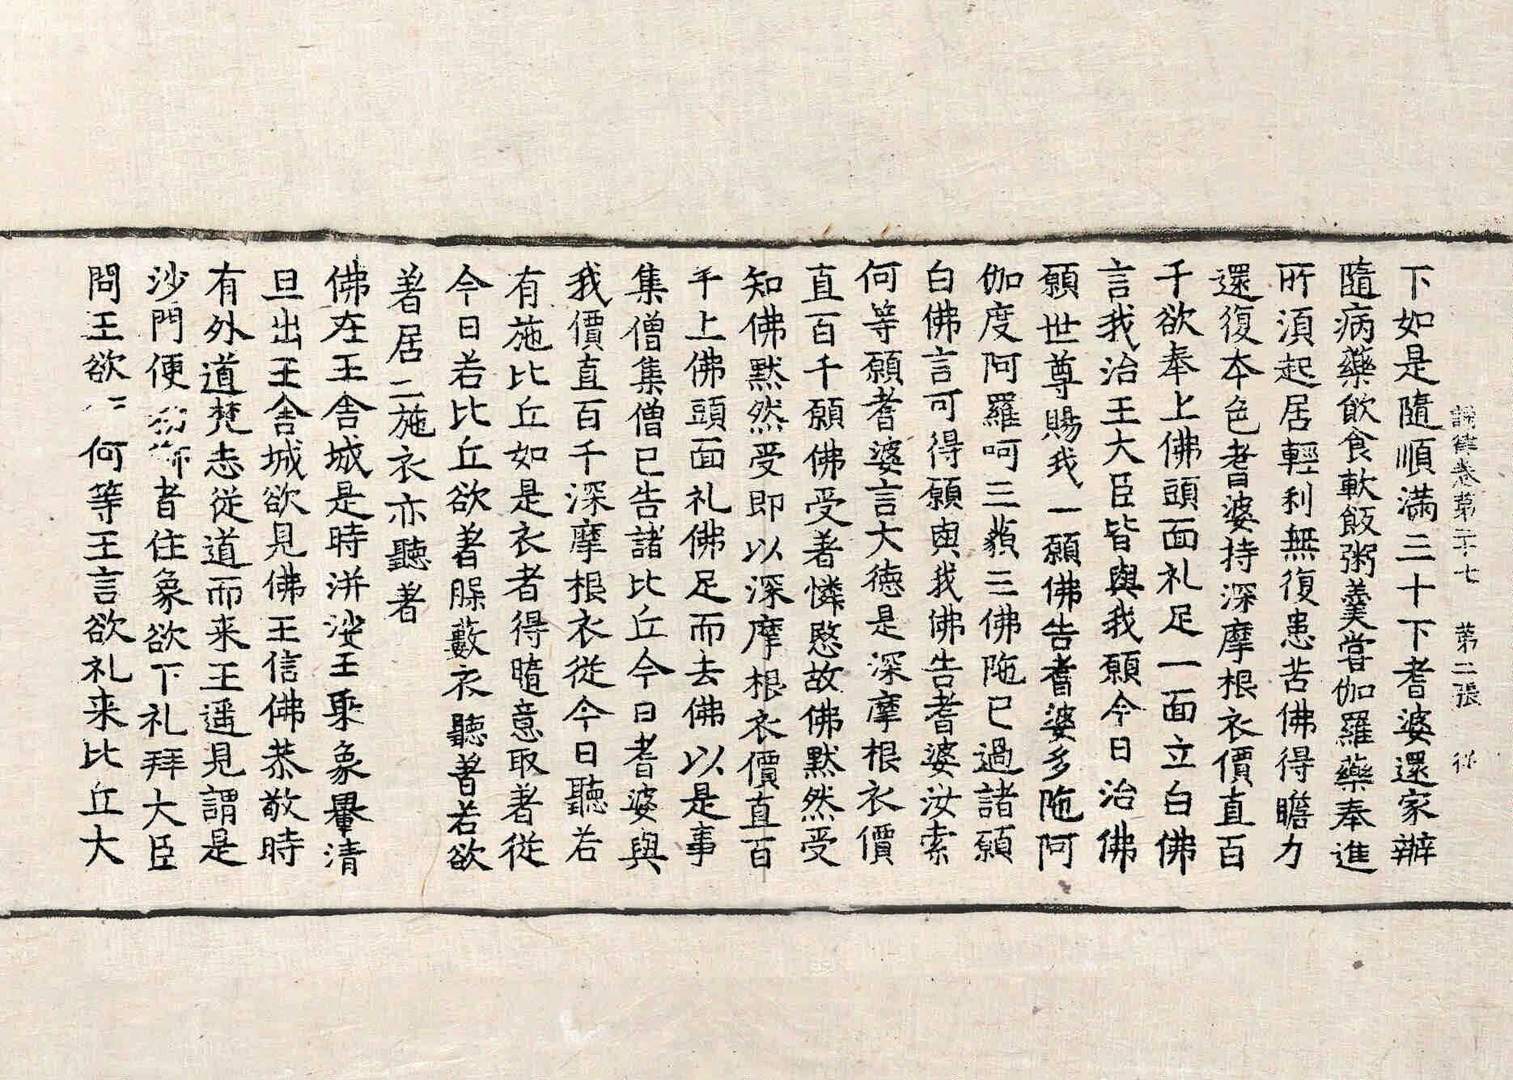 下如是隨順滿三十下耆婆還家辦
隨病藥飲食軟飯粥羹甞伽羅藥奉進
所湏起居輕利無復患苦佛得瞻力
還復本色耆婆持深摩根衣價直百
千欲奉上佛頭面礼足一面立白佛
言我治王大臣皆與我願今日治佛
願世尊賜我一願佛告耆婆多陁阿
伽度阿羅呵三藐三佛陁已過諸願
白佛言可得願與我佛告耆婆汝索
何等願耆婆言大德是深摩根衣價
直百千願佛受著憐愍故佛黙然受
知佛黙然受即以深摩根衣價直百
千上佛頭面礼佛足而去佛以是事
集僧集僧已告諸比丘今日耆婆與
我價直百千深摩根衣從今日聽若
有施比丘如是衣者得隨意取著從
今日若比丘欲著臊藪衣聽著若欲
著居士施衣亦聽著
佛在王舍城是時洴沙王乘象轝清
旦出王舍城欲見佛王信佛恭敬時
有外道梵志從道而来王遥見謂是
沙門便者住象欲下礼拜大臣
問王欲何等王言欲礼来比丘大
誦律卷第三十七 第二張